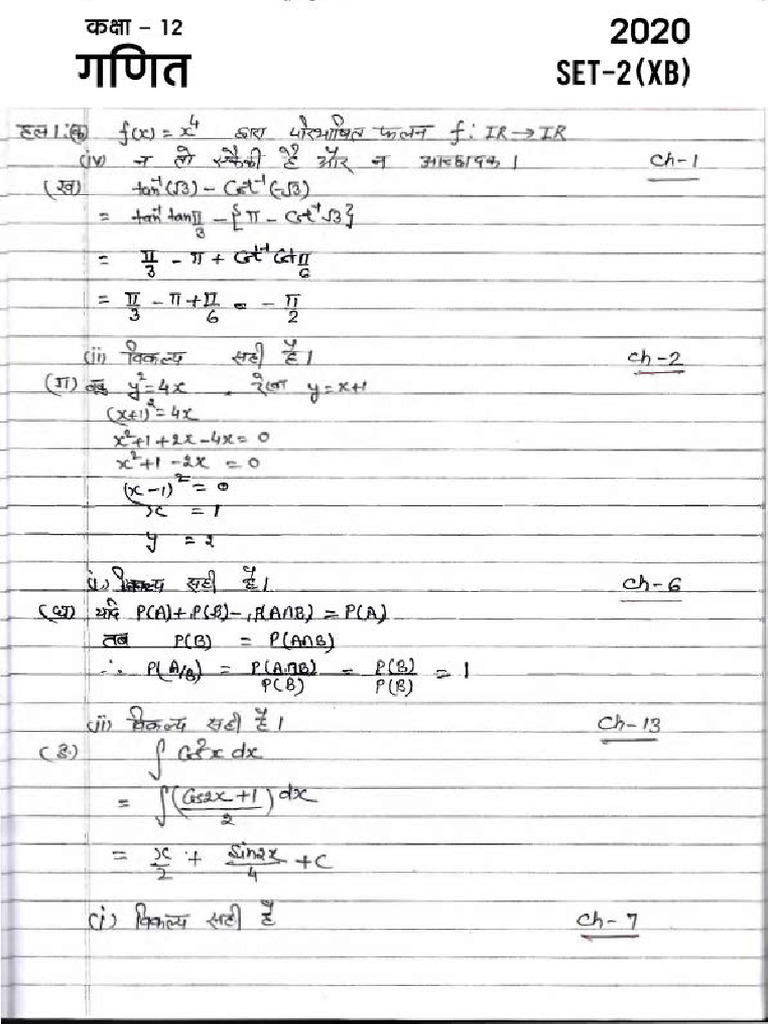 कक्षा - 12
2020
गणित
SET-2(XB)
हल 1:(क) f(x) = x⁴ द्वारा परिभाषित फलन f: IR → IR
(iv) न तो एकैकी है और न आच्छादक। Ch-1
(ख) tan⁻¹(√3) - Cot⁻¹(-√3)
= tan⁻¹ tan π/3 - {π - Cot⁻¹√3}
= π/3 - π + Cot⁻¹ Cot π/6
= π/3 - π + π/6 = - π/2
(ii) विकल्प सही है। Ch-2
(ग) वक्र y² = 4x , रेखा y = x+1
(x+1)² = 4x
x²+1+2x-4x = 0
x²+1-2x = 0
(x-1)² = 0
x = 1
y = 2
(i) विकल्प सही है। Ch-6
(घ) यदि P(A)+P(B)-P(A∩B) = P(A)
तब P(B) = P(A∩B)
∴ P(A/B) = P(A∩B)/P(B) = P(B)/P(B) = 1
(ii) विकल्प सही है। Ch-13
(ङ) ∫ Cos²x dx
= ∫ (Cos2x+1)/2 dx
= x/2 + sin2x/4 + C
(i) विकल्प सही है Ch-7